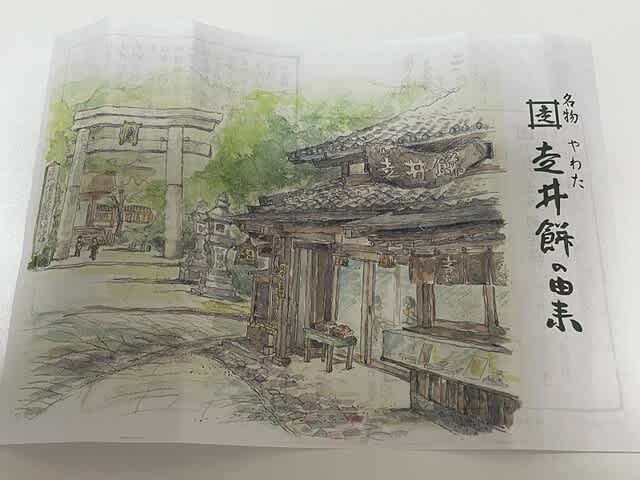 名物
やわた
走
走井餅の由来
走井餅